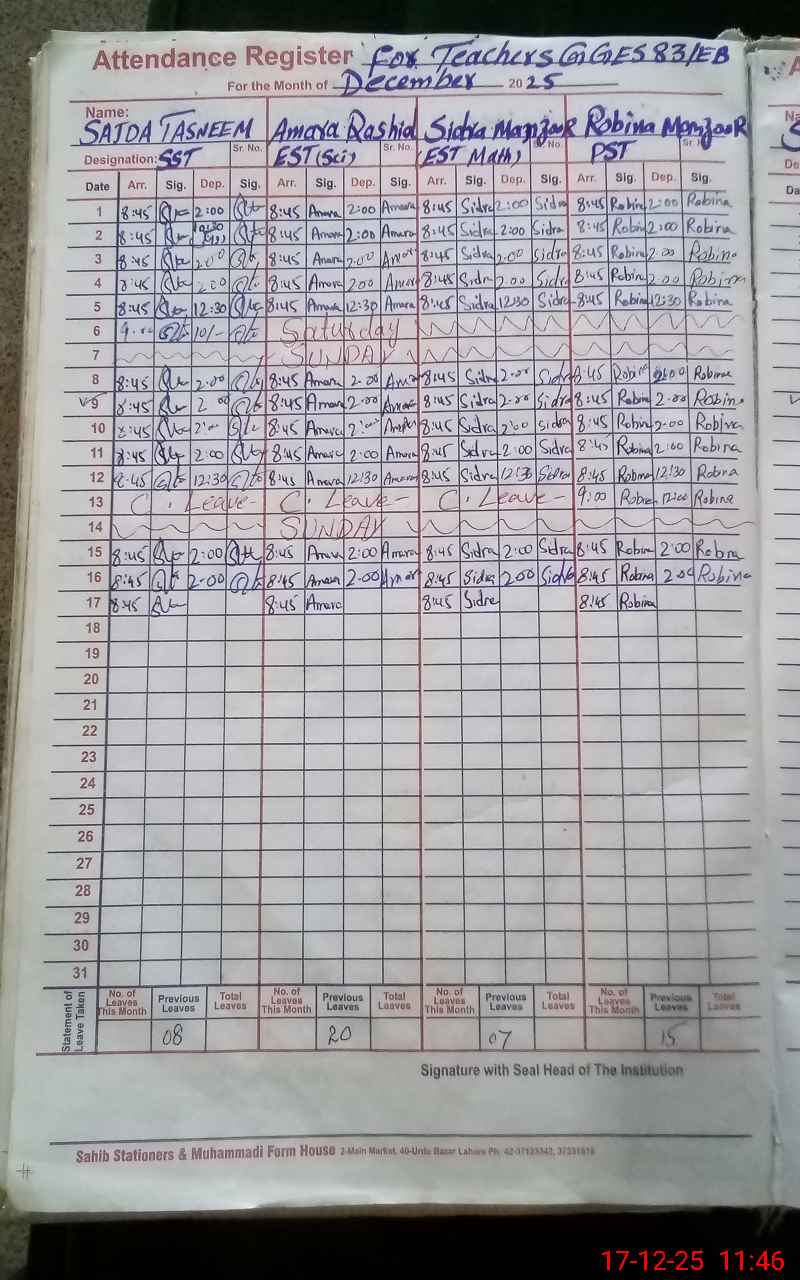 Attendance Register For Teachers GGES 83/EB
For the Month of December 2025
Name:
SAIDA TASNEEM Amara Rashid Sidra Manzoor Robina Manzoor
Designation: SST Sr. No. EST (Sci) Sr. No. (EST Math) PST
Date Arr. Sig. Dep. Sig. Arr. Sig. Dep. Sig. Arr. Sig. Dep. Sig. Arr. Sig. Dep. Sig.
1 8:45 2:00 8:45 Amara 2:00 Amara 8:45 Sidra 2:00 Sidra 8:45 Robina 2:00 Robina
2 8:45 8:45 Amara 2:00 Amara 8:45 Sidra 2:00 Sidra 8:45 Robina 2:00 Robina
3 8:45 2:00 8:45 Amara 2:00 Amara 8:45 Sidra 2:00 Sidra 8:45 Robina 2:00 Robina
4 8:45 2:00 8:45 Amara 2:00 Amara 8:45 Sidra 2:00 Sidra 8:45 Robina 2:00 Robina
5 8:45 12:30 8:45 Amara 12:30 Amara 8:45 Sidra 12:30 Sidra 8:45 Robina 12:30 Robina
6 Saturday
7 SUNDAY
8 8:45 2:00 8:45 Amara 2:00 Amara 8:45 Sidra 2:00 Sidra 8:45 Robina Robina
9 8:45 2:00 8:45 Amara 2:00 Amara 8:45 Sidra 2:00 Sidra 8:45 Robina 2:00 Robina
10 8:45 2:00 8:45 Amara 2:00 8:45 Sidra 2:00 Sidra 8:45 Robina 2:00 Robina
11 8:45 2:00 8:45 Amara 2:00 Amara 8:45 Sidra 2:00 Sidra 8:45 Robina 2:00 Robina
12 8:45 12:30 8:45 Amara 12:30 Amara 8:45 Sidra 12:30 Sidra 8:45 Robina 12:30 Robina
13 C. Leave - C. Leave - C. Leave - 9:00 Robina 12:00 Robina
14 SUNDAY
15 8:45 2:00 8:45 Amara 2:00 Amara 8:45 Sidra 2:00 Sidra 8:45 Robina 2:00 Robina
16 8:45 2:00 8:45 Amara 2:00 Amara 8:45 Sidra 2:00 Sidra 8:45 Robina 2:00 Robina
17 8:45 8:45 Amara 8:45 Sidra 8:45 Robina
18
19
20
21
22
23
24
25
26
27
28
29
30
31
Statement of Leave Taken
No. of Leaves This Month Previous Leaves Total Leaves No. of Leaves This Month Previous Leaves Total Leaves No. of Leaves This Month Previous Leaves Total Leaves No. of Leaves This Month Previous Leaves Total Leaves
08 20 07 15
Signature with Seal Head of The Institution
Sahib Stationers & Muhammadi Form House 2-Main Market, 40-Urdu Bazar Lahore Ph:
17-12-25 11:46